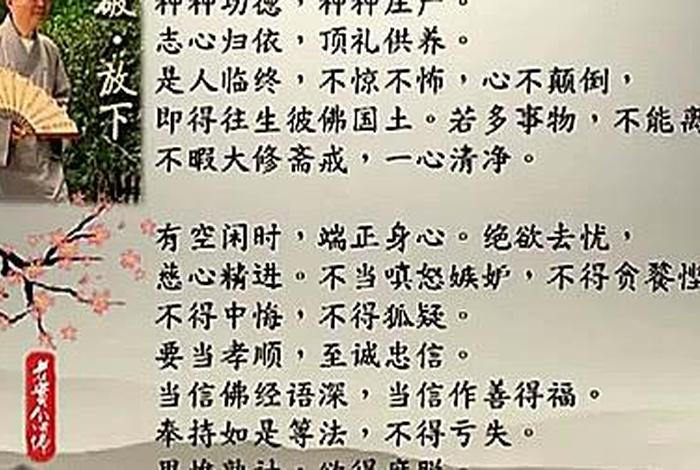 破·放下
种种功德，种种庄严。
志心归依，顶礼供养。
是人临终，不惊不怖，心不颠倒，
即得往生彼佛国土。若多事物，不能离
不暇大修斋戒，一心清净。
有空闲时，端正身心。绝欲去忧，
慈心精进。不当嗔怒嫉妒，不得贪餮悭
不得中悔，不得狐疑。
要当孝顺，至诚忠信。
当信佛经语深，当信作善得福。
奉持如是等法，不得亏失。